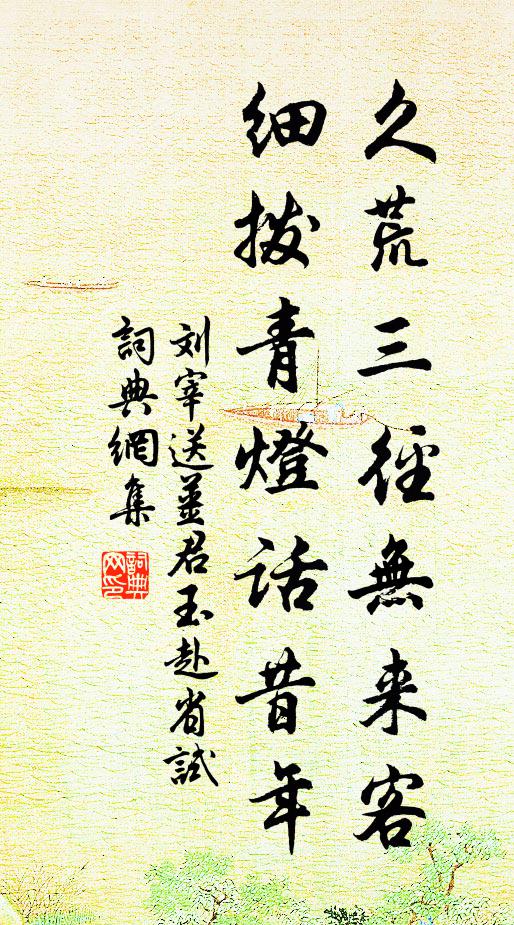 久荒三徑無来客
细拨青燈话昔年
刘宰送姜君玉赴省試
詞典網集
詞典网印